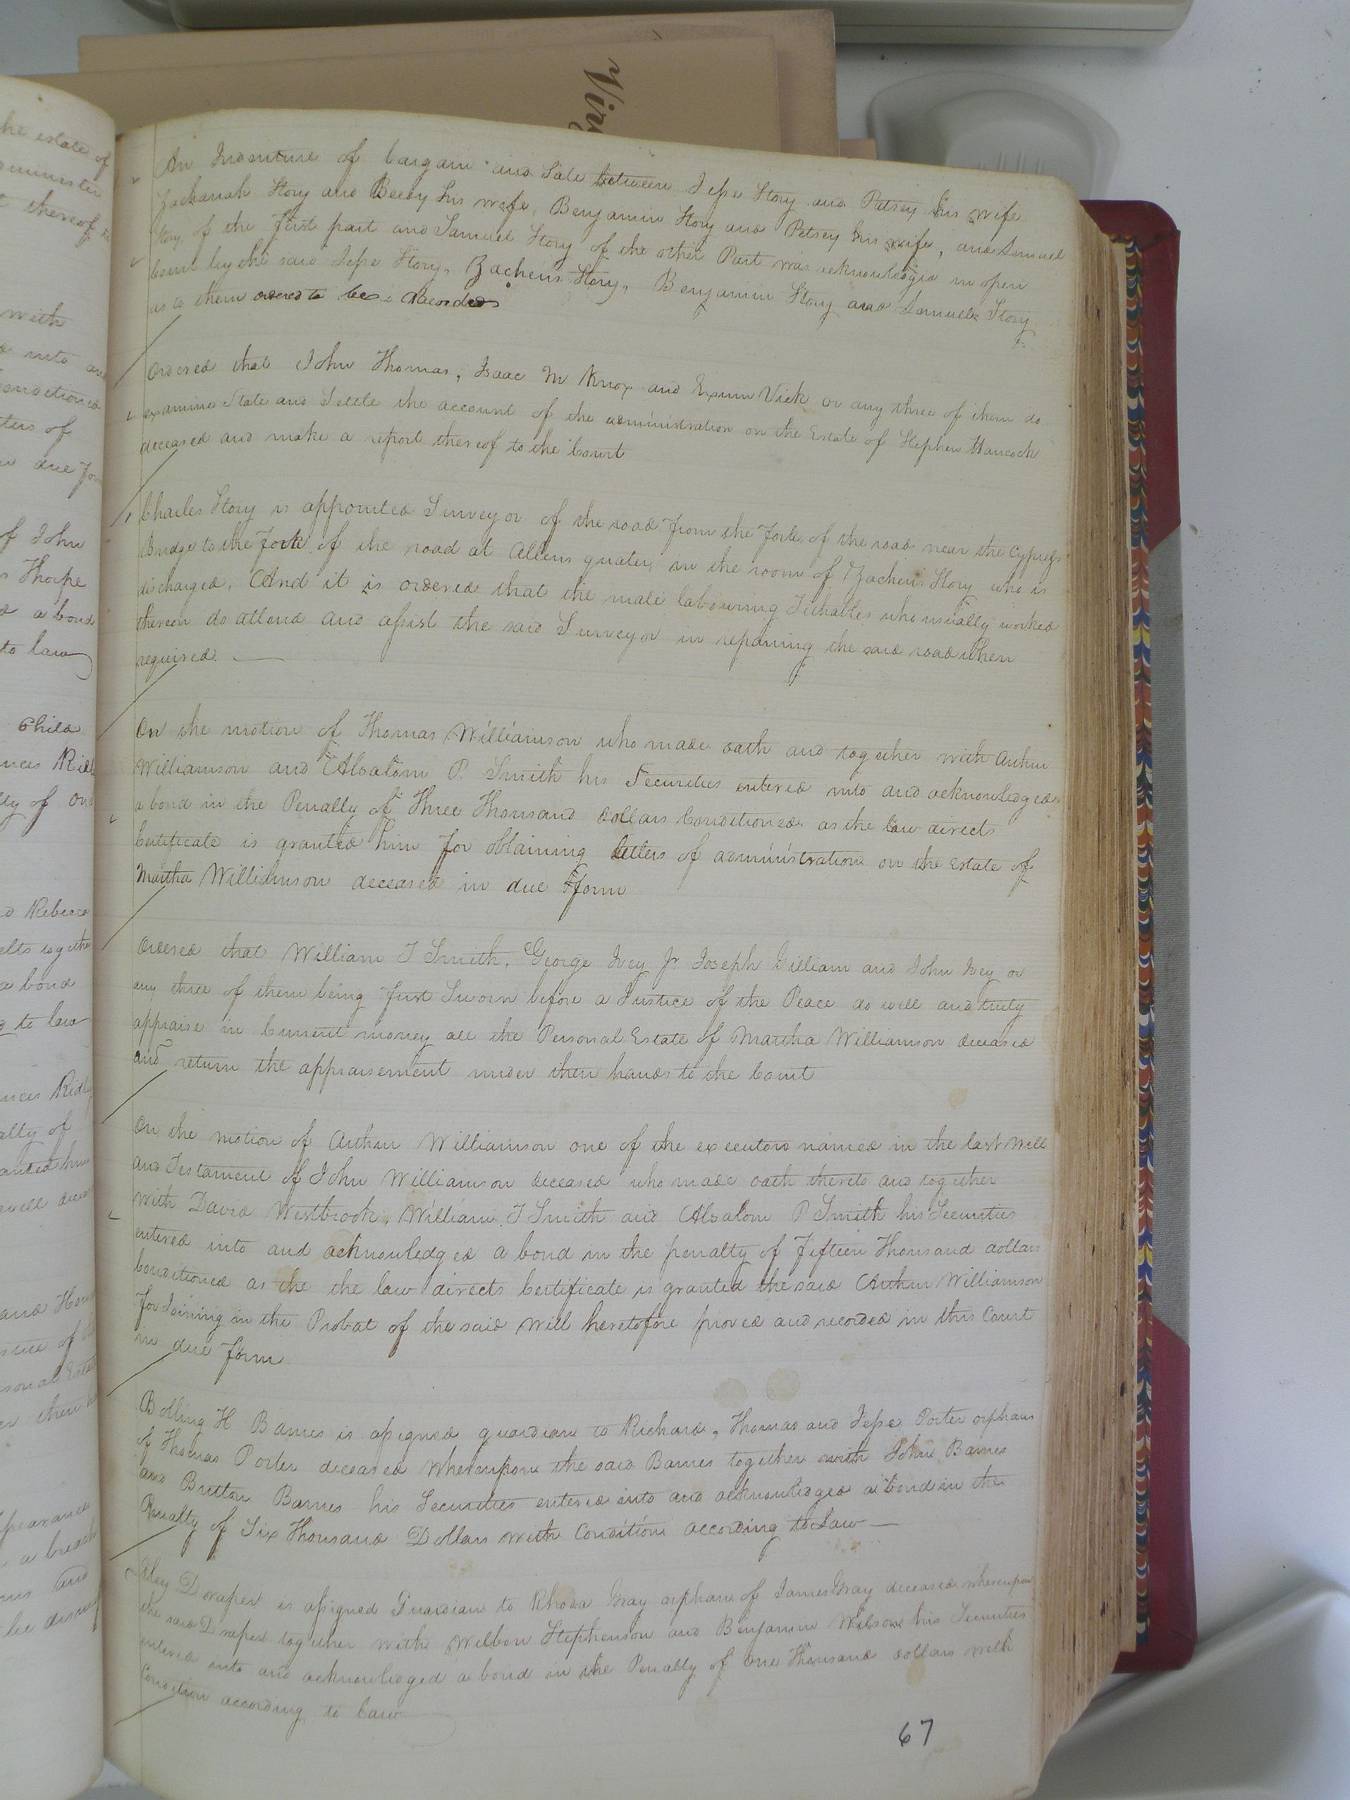 Virg
he estate of
dminister
t thereof
with
d into an
Conditioned
ters of
n due for
of John
s Thorpe
d a bond
to law
Child
nces Ridl
ty of On
d Rebecca
elts together
a bond
g to law
nces Ridl
alty of
anted him
well decea
and How
sonal Estate
pearance
a breach
and
be dismiss
An Indenture of bargain and Sale between Jesse Story and Patsey his wife
Zachariah Story and Beedy his wife, Benjamin Story and Patsey his wife, and Samuel
Story, of the first part and Samuel Story of the other Part was acknowledged in open
Court by the said Jesse Story, Zacheus Story, Benjamin Story and Samuel Story
as to them ordered to be recorded
Ordered that John Thomas, Isaac M Knox and Exum Vick or any three of them do
examine State and Settle the account of the administration on the Estate of Stephen Hancock
deceased and make a report thereof to the Court
Charles Story is appointed Surveyor of the road from the fork of the road near the Cypress
Bridge to the fork of the road at Allens quater, in the room of Zacheus Story who is
discharged, And it is ordered that the male labouring Tithables who usually worked
thereon do attend and assist the said Surveyor in repairing the said road when
required.
On the motion of Thomas Williamson who made oath and together with Arthur
Williamson and Absalom P. Smith his Securities entered into and acknowledged
a bond in the Penalty of Three Thousand dollars Conditioned as the law directs
Certificate is granted him for obtaining letters of administration on the Estate of
Martha Williamson deceased in due form
Ordered that William T Smith, George Ivey Jr Joseph Gilliam and John Ivey or
any three of them being first Sworn before a Justice of the Peace do well and truly
appraise in Current money all the Personal Estate of Martha Williamson deceased
and return the appraisement under their hands to the Court
On the motion of Arthur Williamson one of the executors named in the last Will
and Testament of John Williamson deceased who made oath thereto and together
with David Westbrook, William T Smith and Absalom P Smith his Securities
entered into and acknowledged a bond in the penalty of Fifteen Thousand dollars
Conditioned as the the law directs Certificate is granted the said Arthur Williamson
for Joining in the Probat of the said Will heretofore proved and recorded in this Court
in due form
Bolling H Barnes is assigned guardian to Richard, Thomas and Jesse Porter orphans
of Thomas Porter deceased whereupon the said Barnes together with John Barnes
and Britton Barnes his Securities entered into and acknowledged a bond in the
Penalty of Six Thousand Dollars with Condition according to Law
Draper is assigned Guardian to Rhoda Gray orphan of James Gray deceased whereupon
the said Draper together with Wilbon Stephenson and Benjamin Wilson his Securities
entered into and acknowledged a bond in the Penalty of one Thousand dollars with
Condition according to Law
67